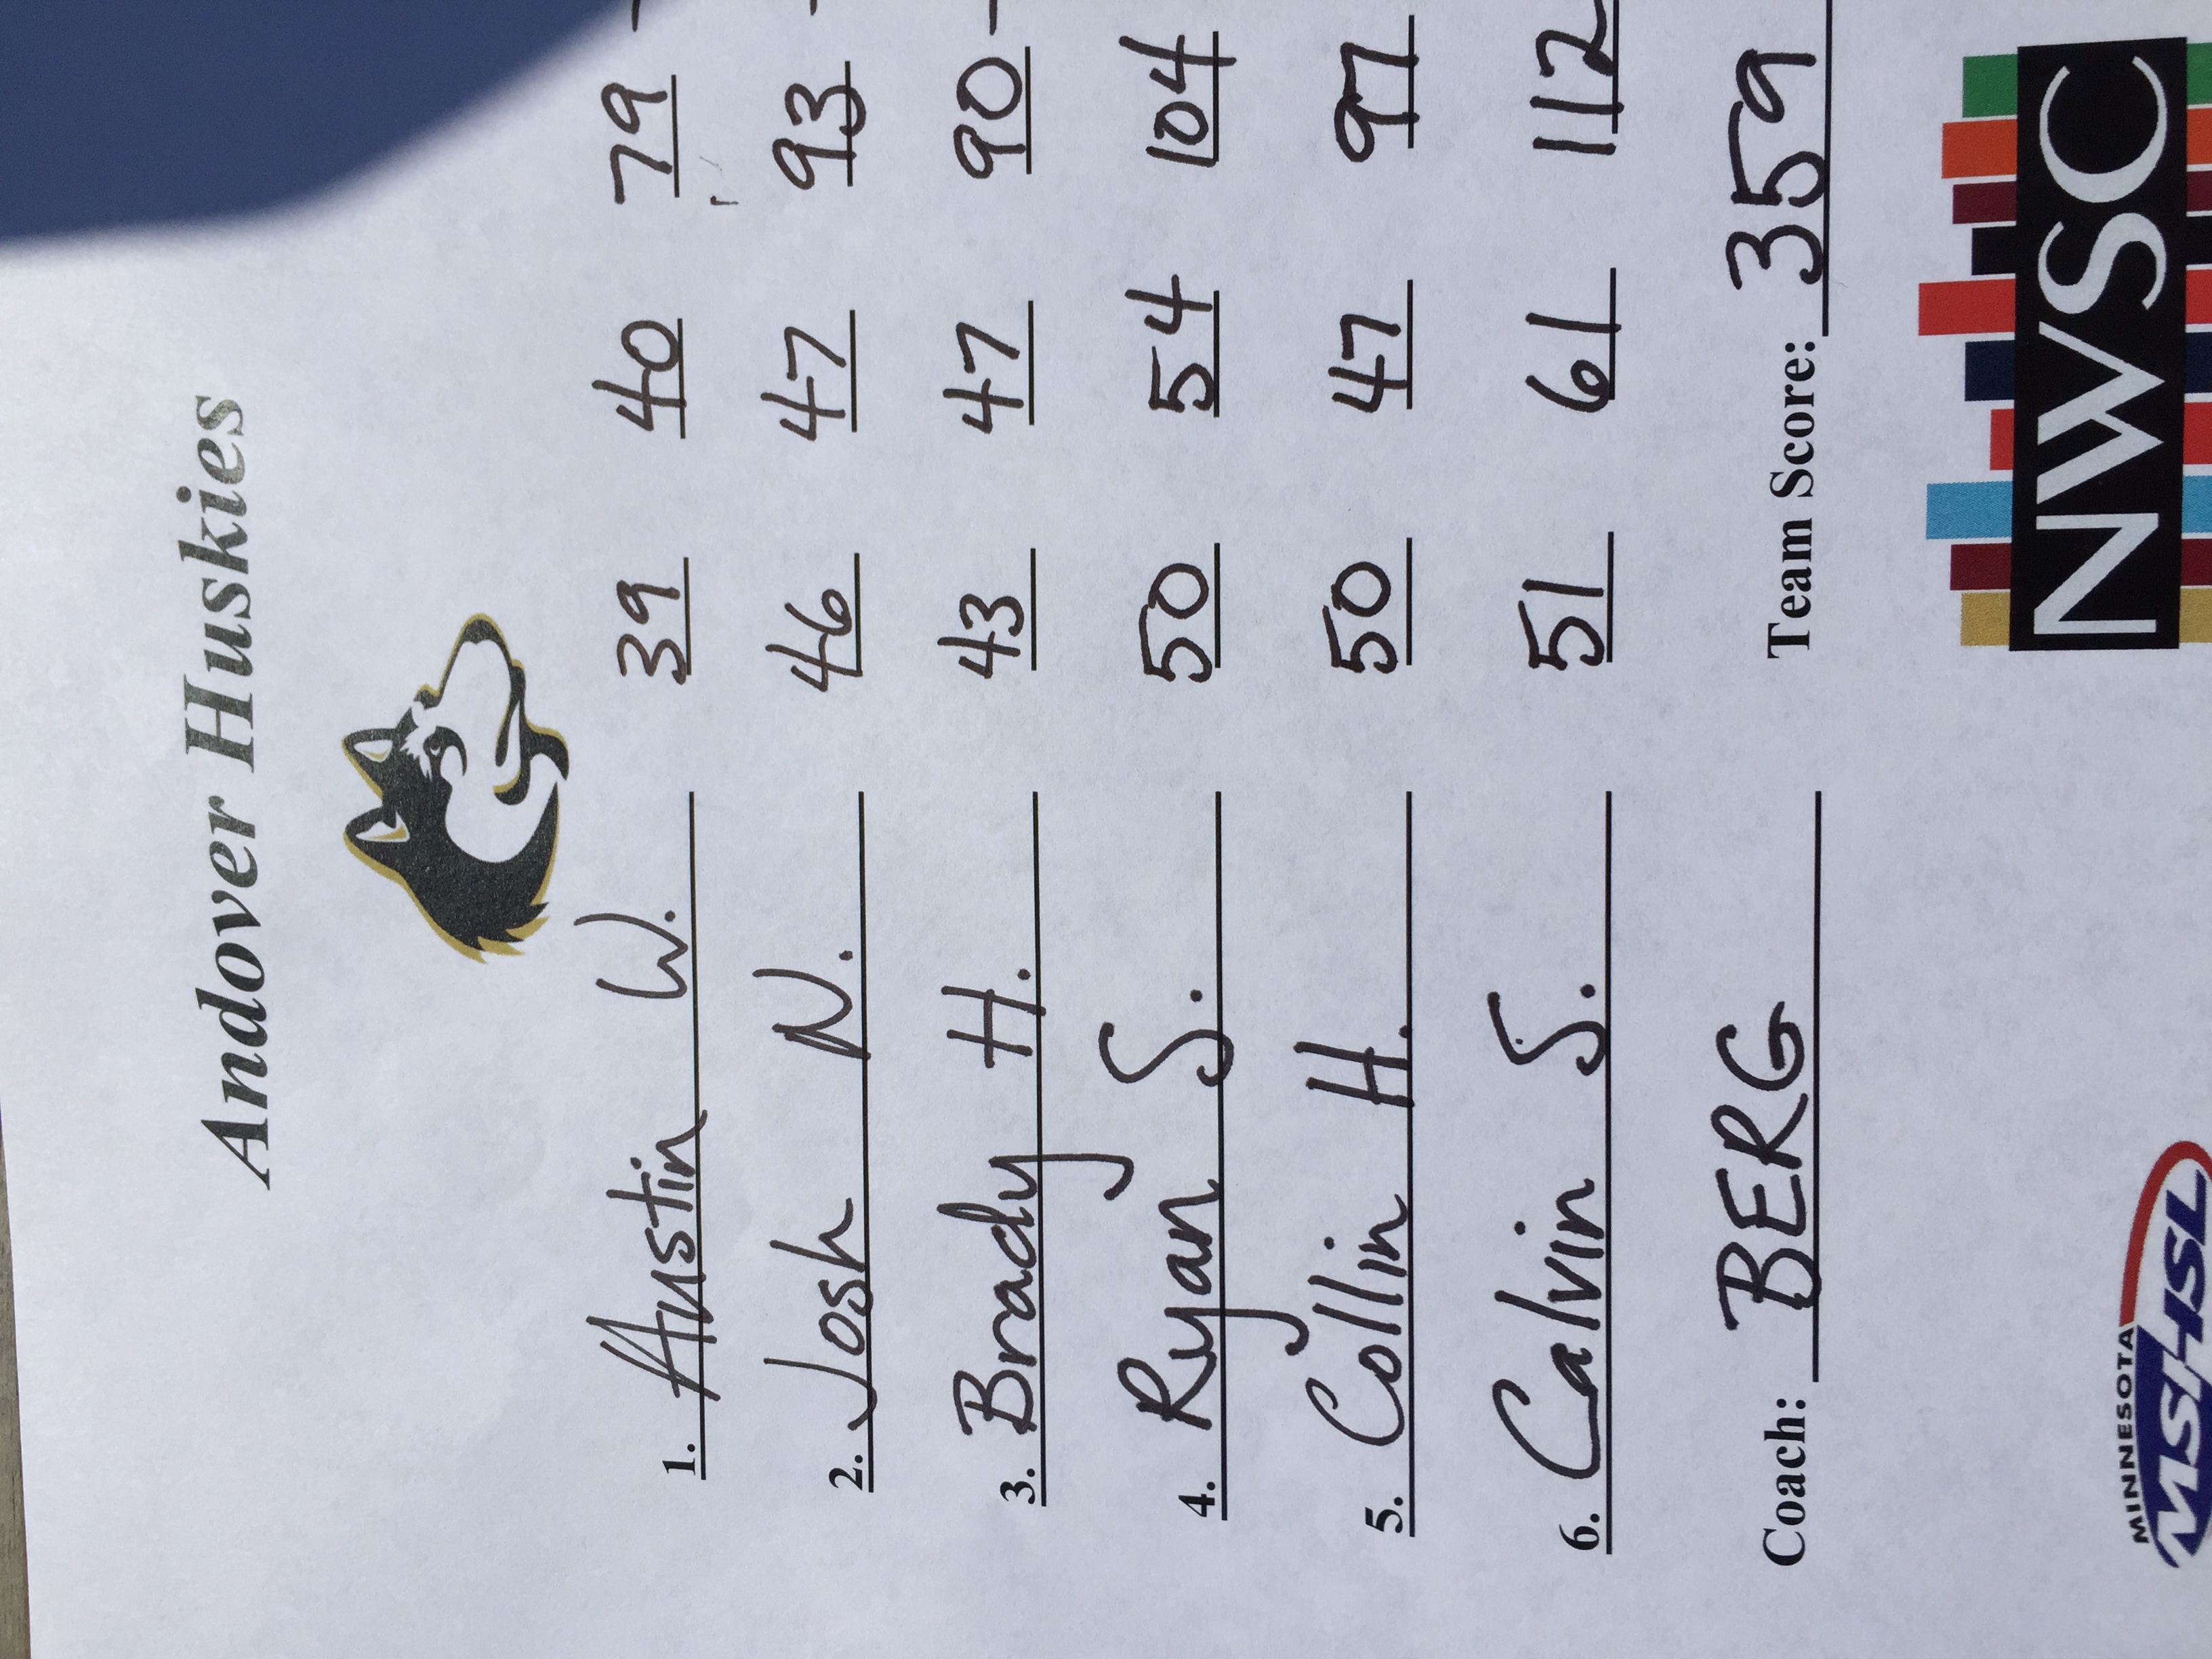 Andover Huskies
1. Austin W. 39 40 79 -
2. Josh N. 46 47 93 -
3. Brady H. 43 47 90 -
4. Ryan S. 50 54 104
5. Collin H. 50 47 97
6. Calvin S. 51 61 112
Coach: BERG Team Score: 359
MINNESOTA
MSHSL
NWSC